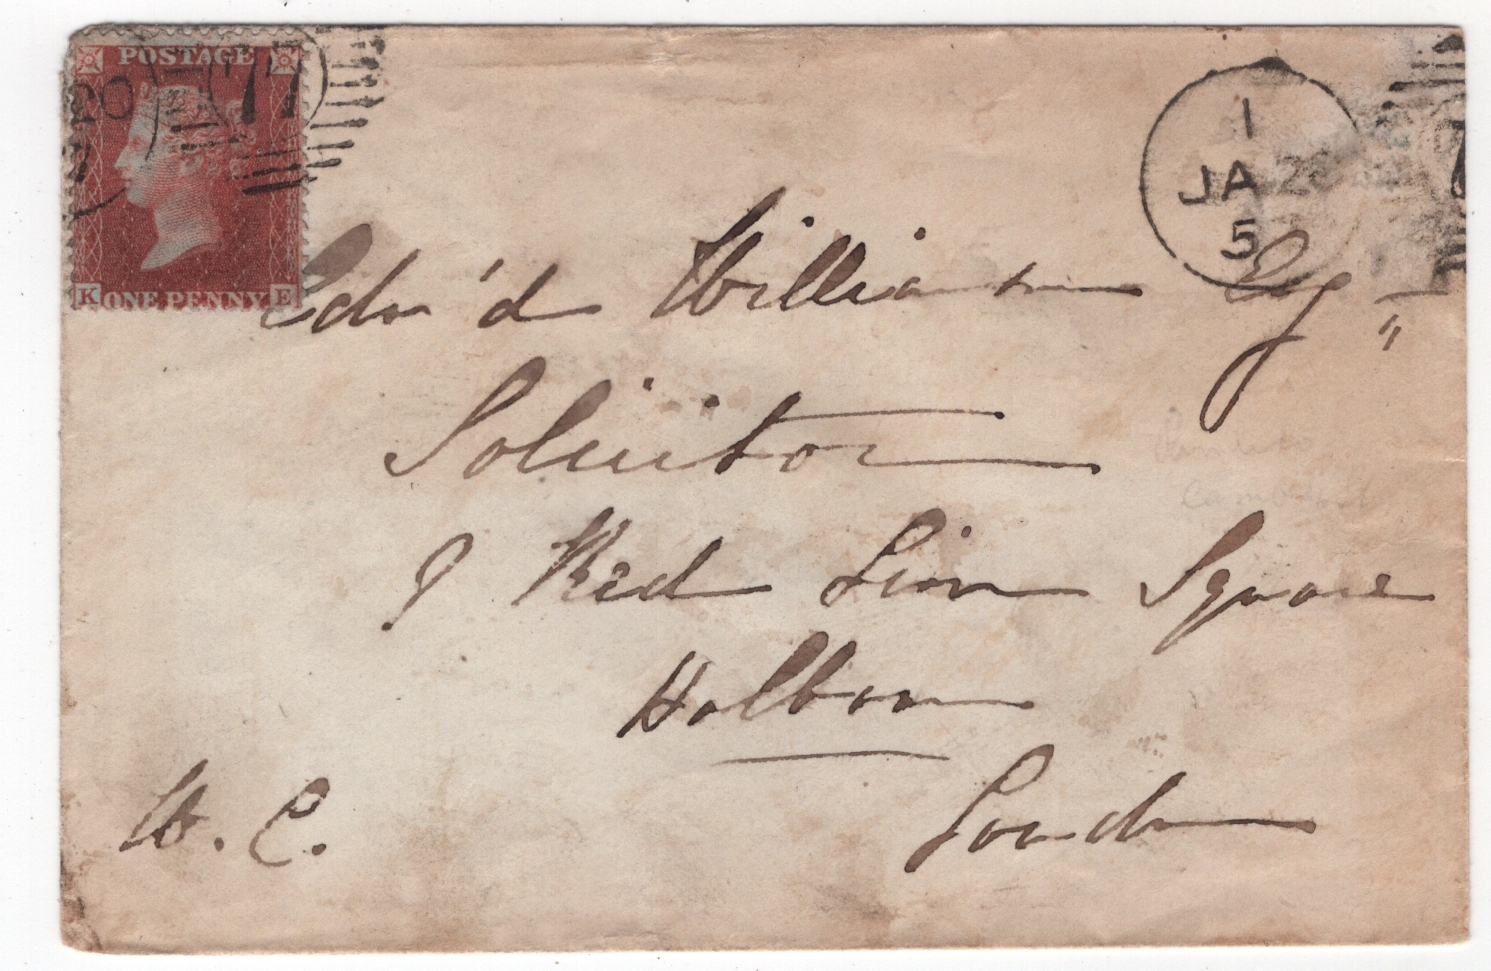 POSTAGE
20 77
7
K ONE PENNY E
1
JA 20
5
Edw'd William Esq"
Solicitor
9 Red Lion Square
Holborn
London
W. C.